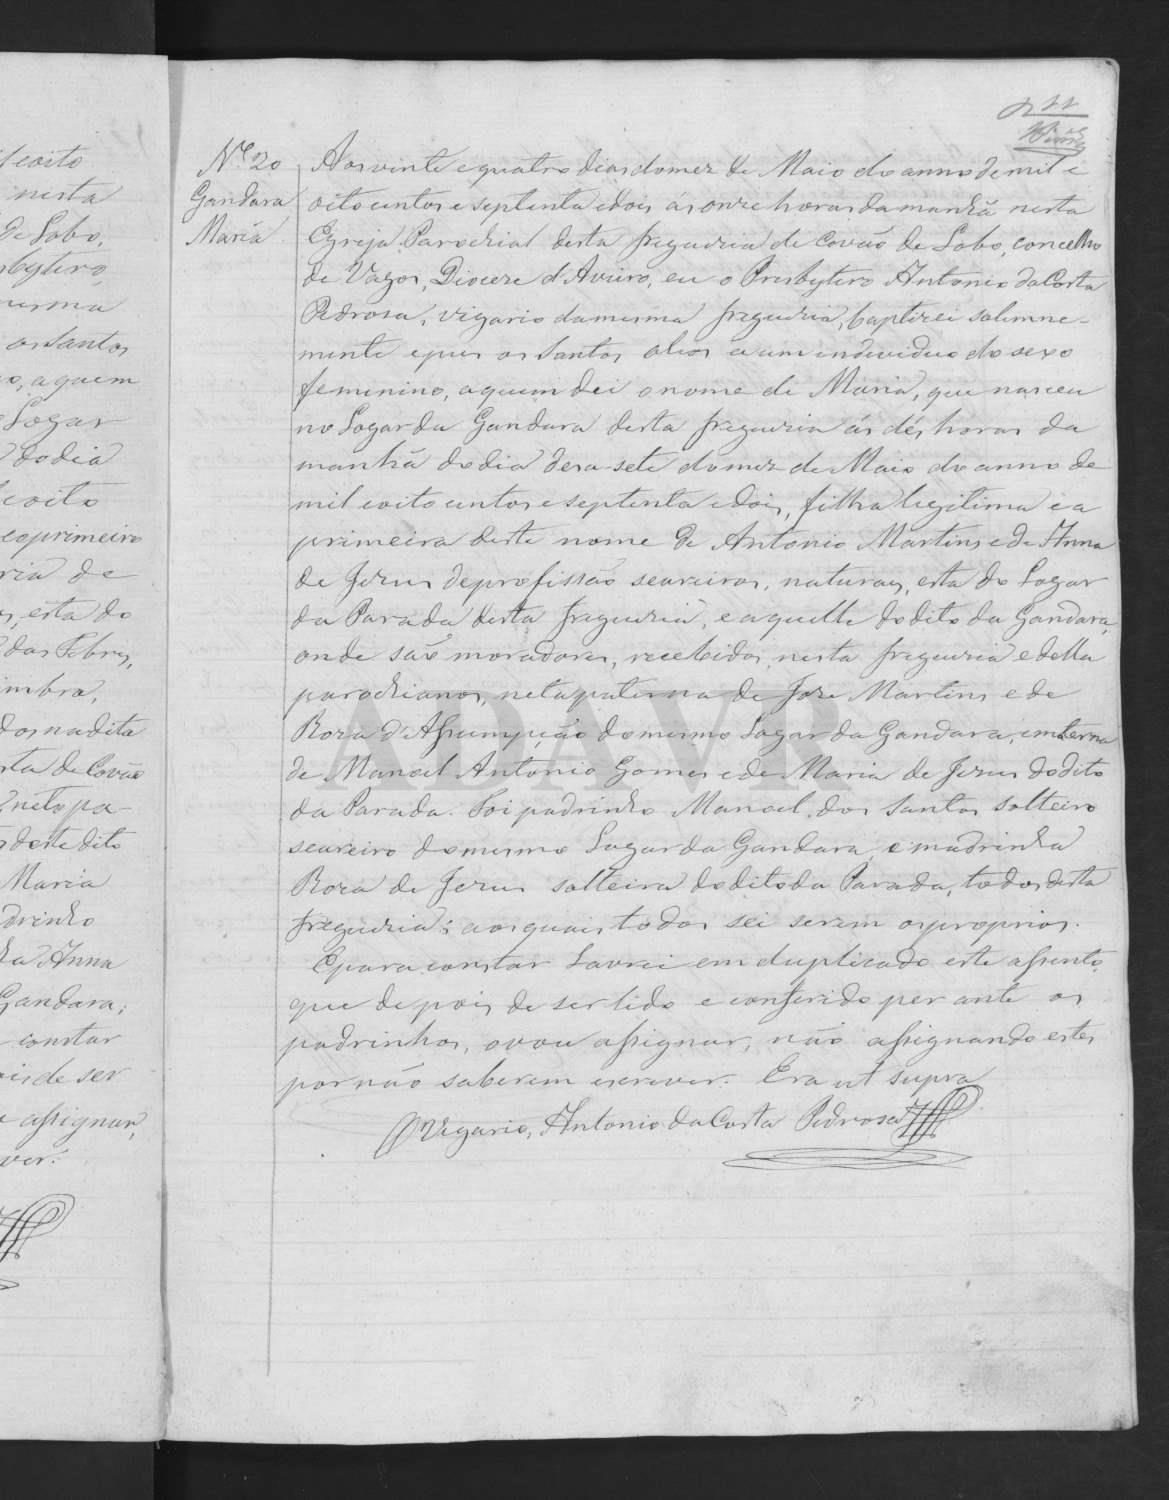 il eoito
nesta
de Lobo,
sbytero,
mesma
os Santos
o, a quem
Logar
do dia
eoito
e o primeiro
ria de
s, esta do
das Febres,
imbra,
dos na dita
sta de Covão
neto pa-
deste dito
Maria
drinho
ha Anna
Gandara;
constar
ois de ser
assignar,
ver.
Nº 20
Gandara
Maria
Aos vinte e quatro dias do mez de Maio do anno de mil e
oitocentos e septenta e dois ás onze horas da manhã nesta
Egreja Parochial desta freguezia de Covão de Lobo, concelho
de Vagos, Diocese d'Aveiro, eu o Presbytero Antonio da Costa
Pedrosa, vigario da mesma freguezia, baptizei solemne-
mente e pus os Santos oleos a um individuo do sexo
femenino, a quem dei o nome de Maria, que nasceu
no Logar da Gandara desta freguezia ás déz horas da
manhã do dia desasete do mez de Maio do anno de
mil eoitocentos e septenta e dois, filha legitima e a
primeira deste nome de Antonio Martins e de Anna
de Jesus de profissão seareiros, naturaes, esta do Logar
da Parada desta freguezia, e aquelle do dito da Gandara,
onde são moradores, recebidos nesta freguezia e della
parochianos, neta paterna de Jose Martins e de
Roza d'Assumpção do mesmo Logar da Gandara, e materna
de Manoel Antonio Gomes e de Maria de Jesus do dito
da Parada. Foi padrinho Manoel dos Santos solteiro
seareiro do mesmo Logar da Gandara, e madrinha
Roza de Jesus solteira do dito da Parada, todos desta
freguezia; aos quais todos sei serem os proprios.
E para constar Lavrei em duplicado este assento,
que depois de ser lido e conferido per ante os
padrinhos, o vou assignar, não assignando estes
por não saberem escrever. Era ut supra
O Vigario, Antonio da Costa Pedrosa
ADAVR